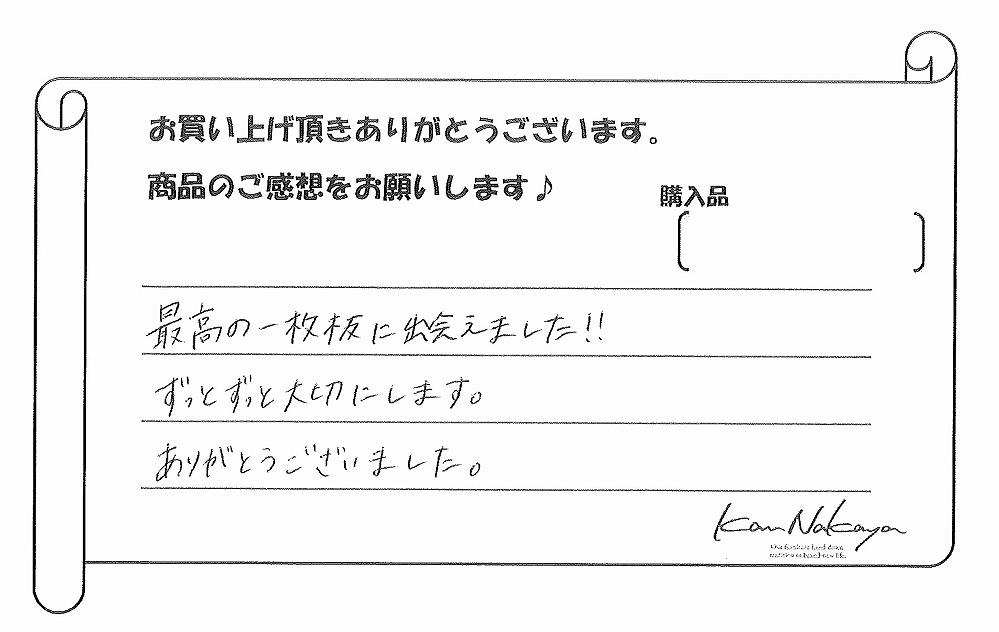 お買い上げ頂きありがとうございます。
商品のご感想をお願いします♪
購入品
最高の一枚板に出会えました!!
ずっとずっと大切にします。
ありがとうございました。
Kan Nakaya